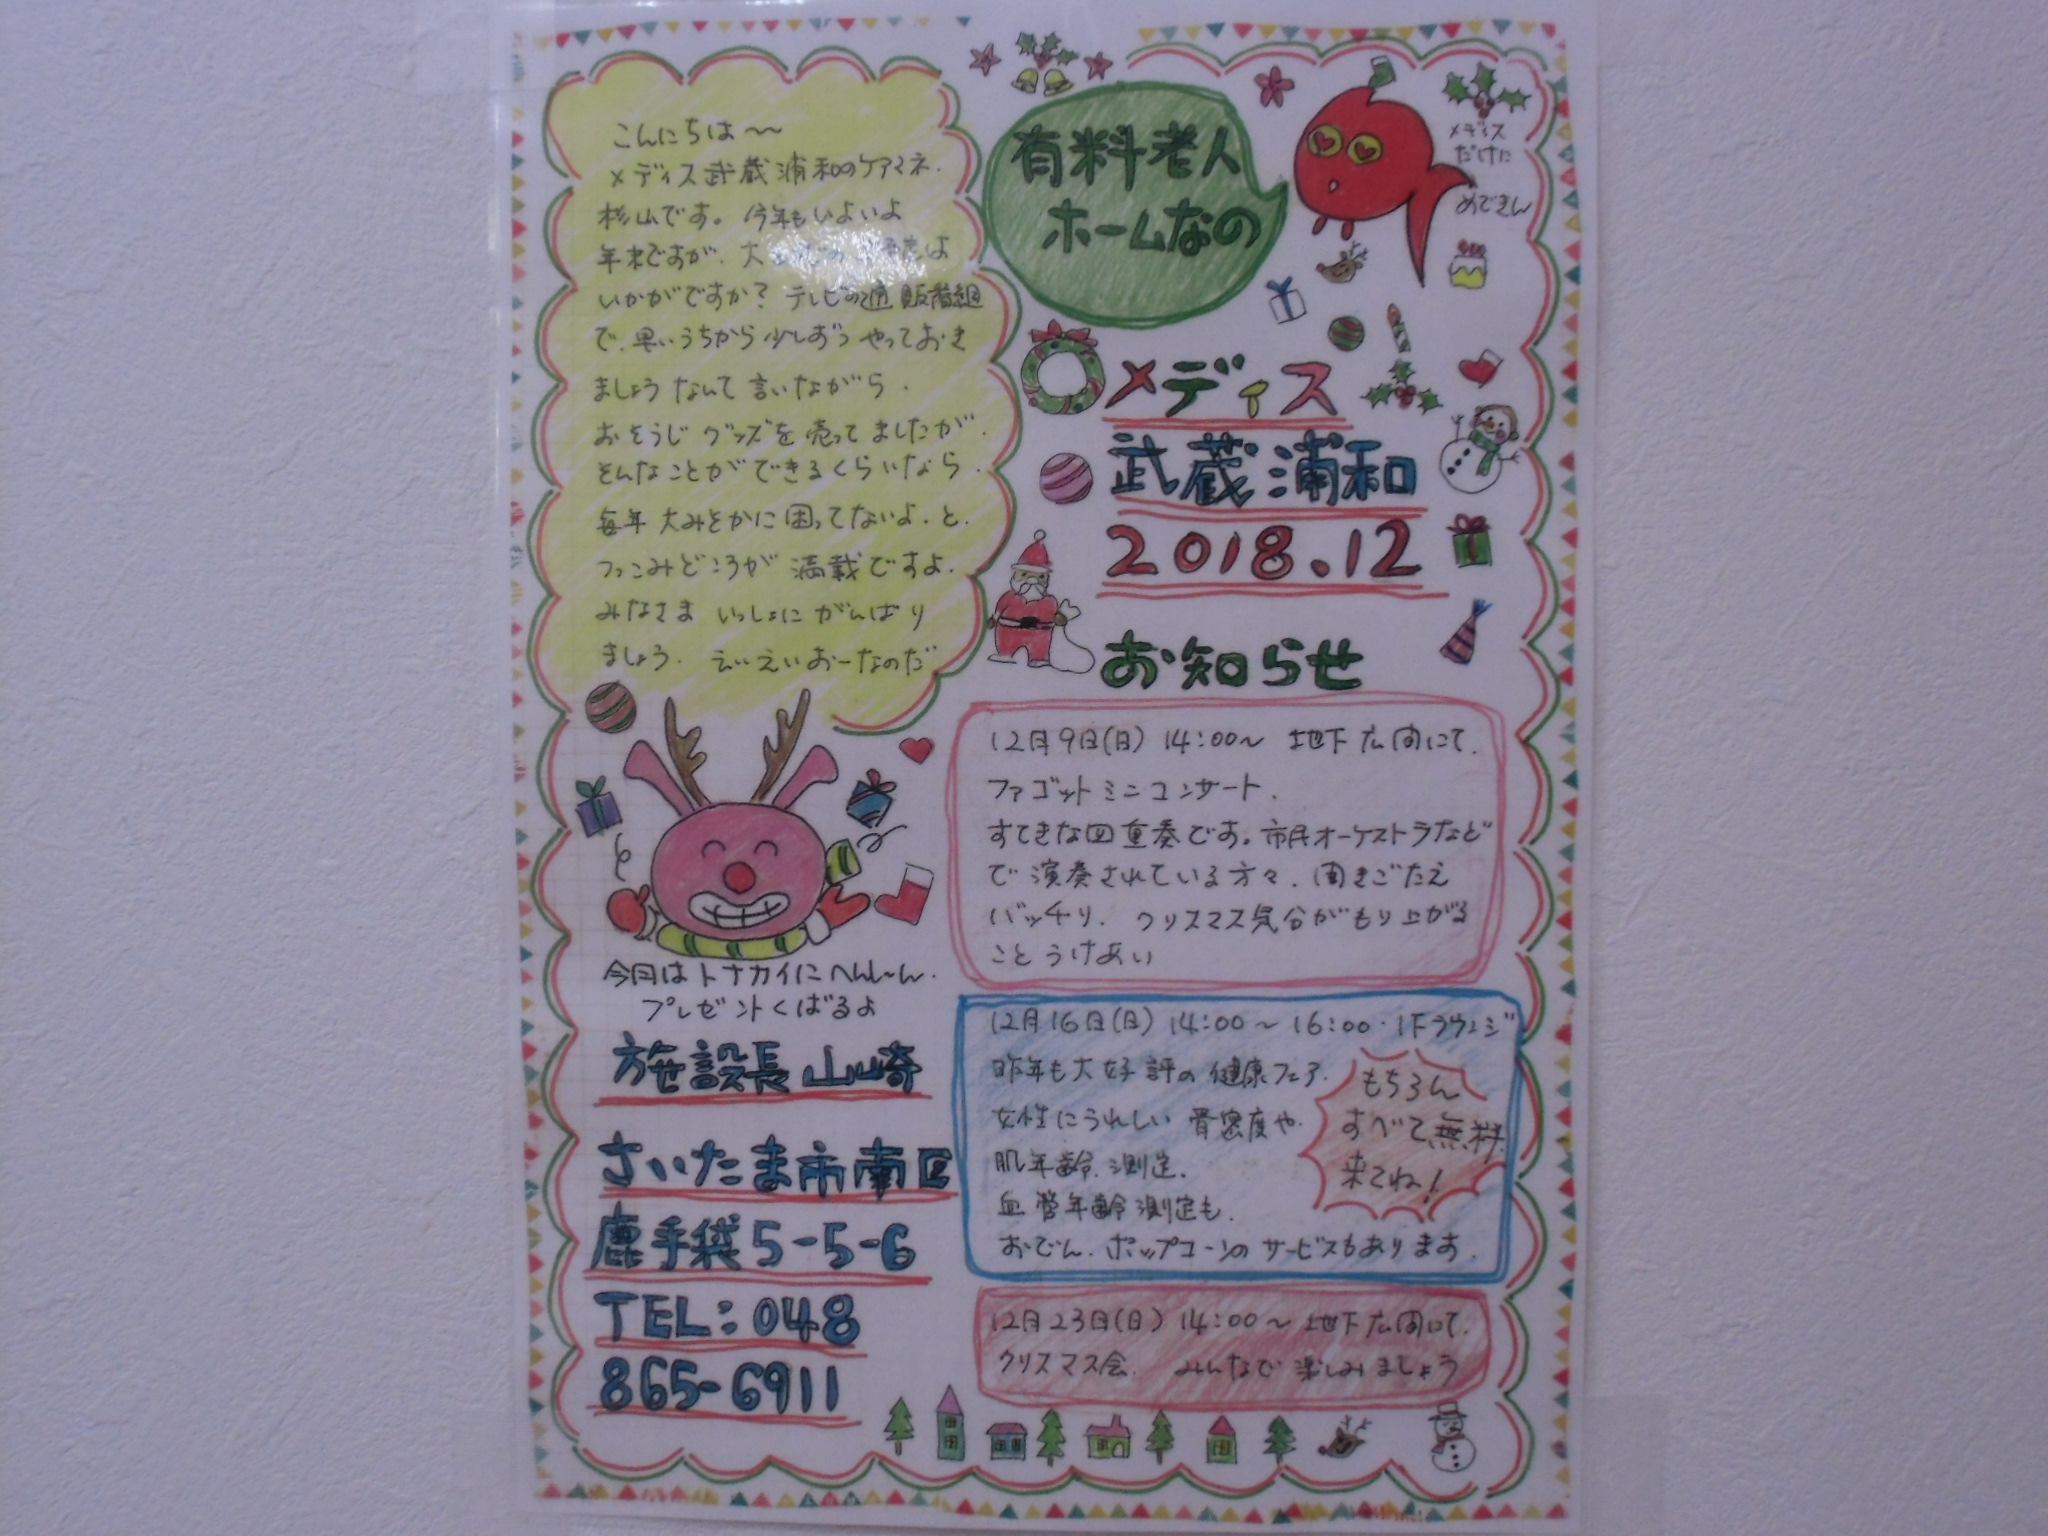 有料老人
ホームなの
メディス
だけに
めできん
メディス
武蔵浦和
2018.12
お知らせ
こんにちは〜〜
メディス武蔵浦和のケアマネ、
杉山です。今年もいよいよ
年末ですが、大
は
いかがですか?テレビの通販番組
で、早いうちから少しずつやっておき
ましょうなんて言いながら、
おそうじグッズを売ってましたが、
そんなことができるくらいなら、
毎年大みそかに困ってないよ、と、
つっこみどころが満載ですよ。
みなさまいっしょにがんばり
ましょう。えいえいおーなのだ
今月はトナカイにへんし〜ん。
プレゼントくばるよ
施設長山崎
さいたま市南区
鹿手袋5-5-6
TEL:048
865-6911
12月9日(日)14:00〜 地下広間にて、
ファゴットミニコンサート、
すてきな四重奏です。市民オーケストラなど
で演奏されている方々、聞きごたえ
バッチリ、クリスマス気分がもり上がる
ことうけあい
12月16日(日)14:00〜16:00・1Fラウンジ
昨年も大好評の健康フェア、
女性にうれしい骨密度や、
肌年齢、測定、
血管年齢測定も、
おでん、ポップコーンのサービスもあります。
もちろん
すべて無料
来てね!
12月23日(日)14:00〜地下広間にて、
クリスマス会、みんなで楽しみましょう